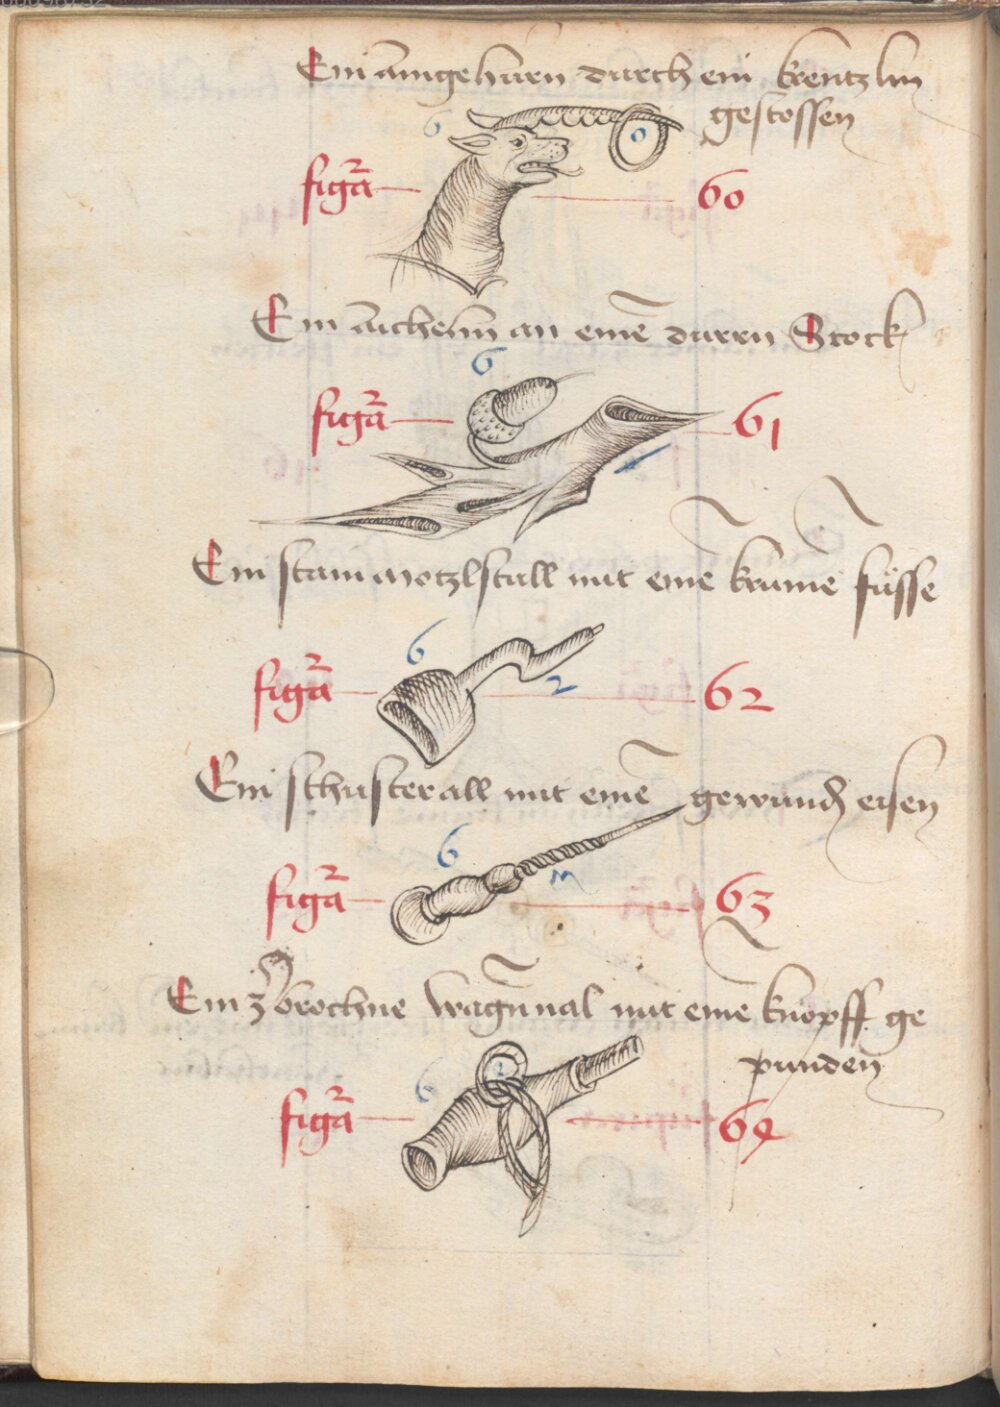 Ein aingehürn durch ein krentzlin
gestossen
6 0
figura 60
Ein aichelin an eine durrn Stock
6
figura 61
1
Ein stain motzlstall mit eine krume füsse
6
figura 62
2
Ein schusterall mit eine gewunden eisen
6
figura 63
3
Ein zbrochne wagnnal mit eine knopff ge
punden
6
figura 64